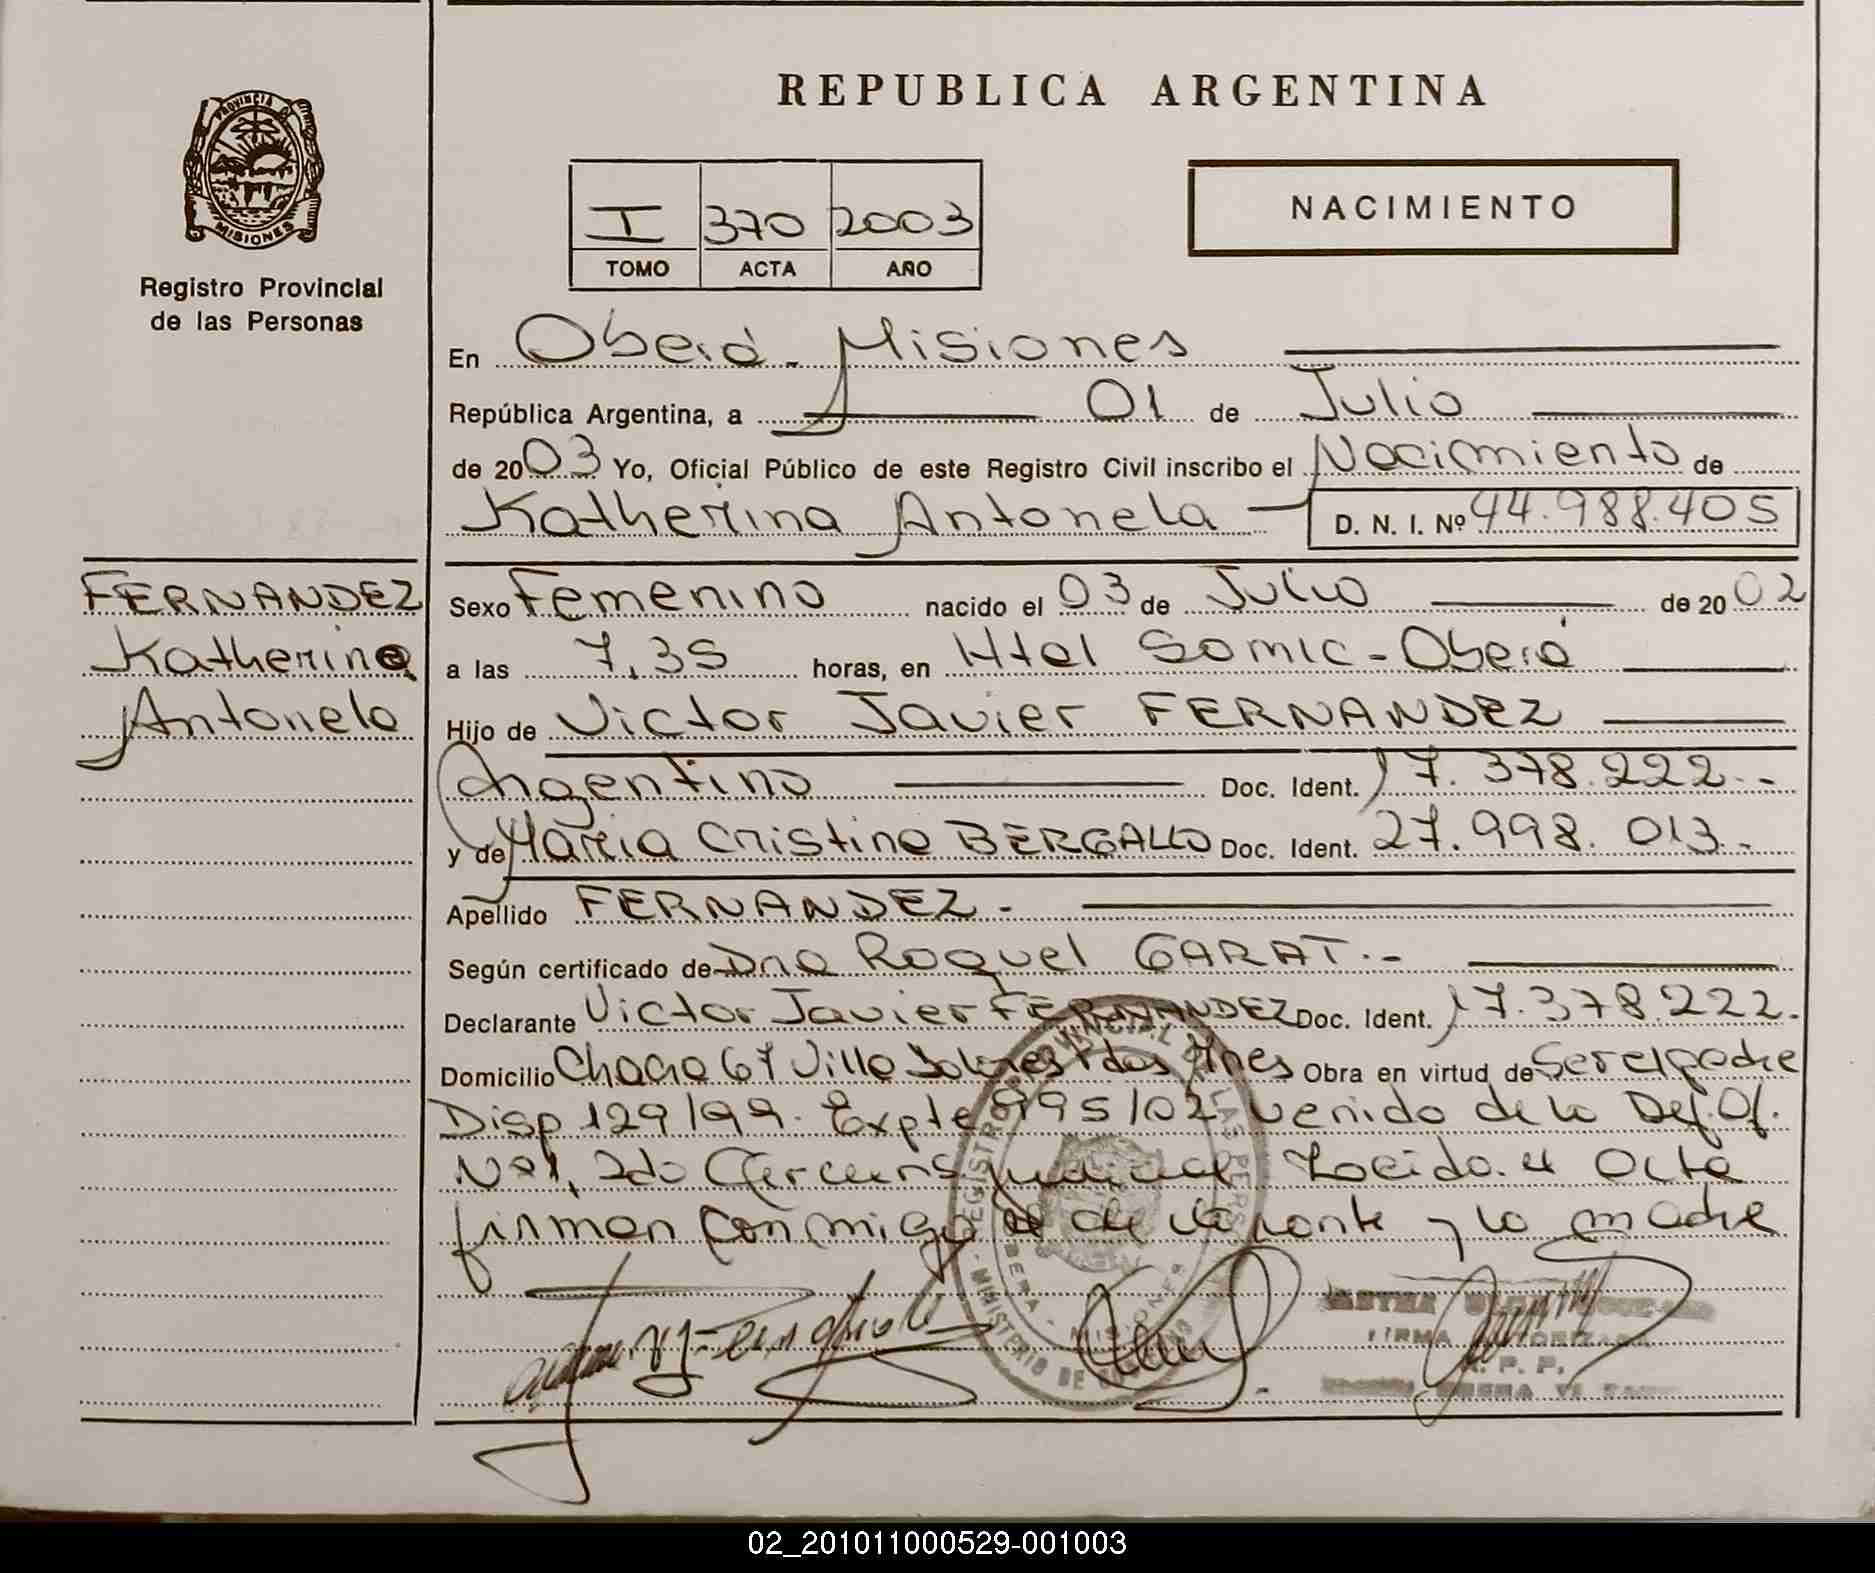 REPUBLICA ARGENTINA
PROVINCIA DE
MISIONES
Registro Provincial
de las Personas
I 370 2003
TOMO ACTA AÑO
NACIMIENTO
En Oberá - Misiones
República Argentina, a 01 de Julio
de 2003 Yo, Oficial Público de este Registro Civil inscribo el Nacimiento de
Katherina Antonela D. N. I. Nº 44.988.405
FERNANDEZ
Katherina
Antonela
Sexo Femenino nacido el 03 de Julio de 2002
a las 7,35 horas, en Htal Samic - Oberá
Hijo de Victor Javier FERNANDEZ
Argentino Doc. Ident. 17.378.222.-
y de Maria Cristina BERGALLO Doc. Ident. 27.998.013.-
Apellido FERNANDEZ.-
Según certificado de Dra Raquel GARAT.-
Declarante Victor Javier FERNANDEZ Doc. Ident. 17.378.222.-
Domicilio Chacra 67 Villa Obra en virtud de ser el padre
Disp 129/99. Expte 995/02 venido de la Def. Of.
Nº1, 2da Judicial Leida el Acta
firman conmigo el declarante y la madre
FIRMA AUTORIZADA
R. P. P.
02_201011000529-001003